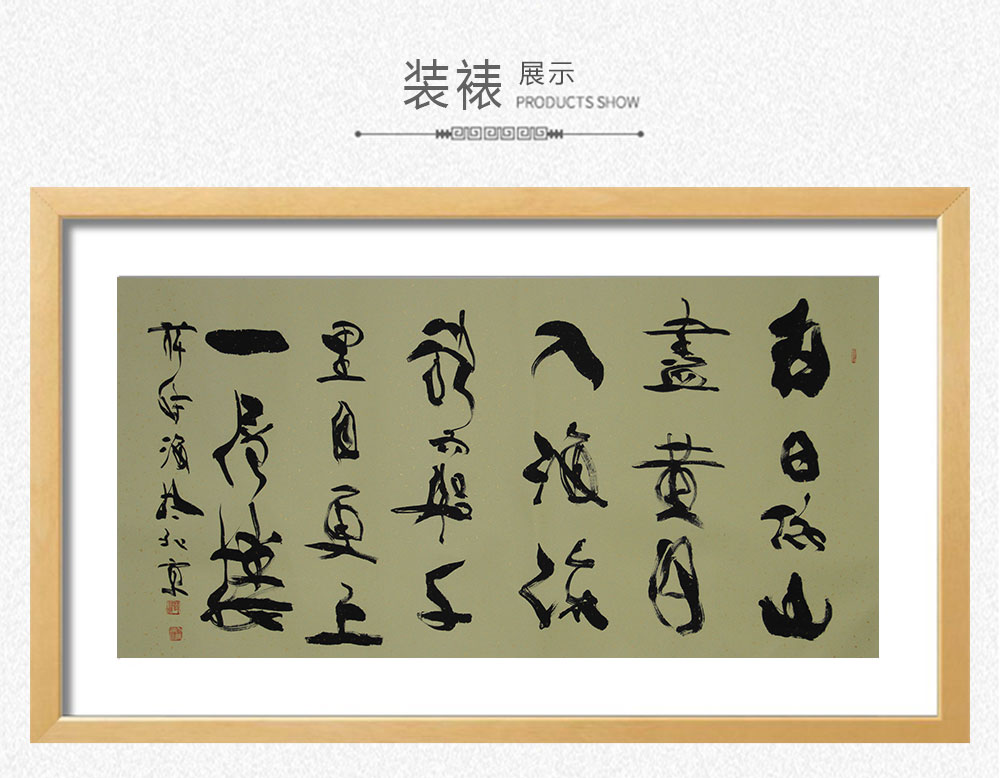 装裱
展示
PRODUCTS SHOW
白日依山
盡黄河
入海流
欲窮千
里目更上
一層樓
薛海於北京